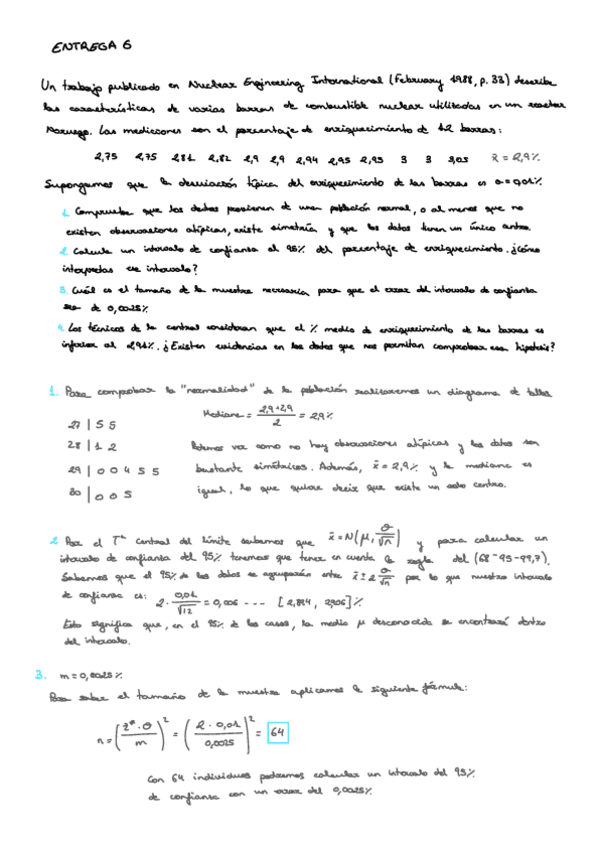 ENTREGA 6
Un trabajo publicado en Nuclear Engineering International (February 1988, p. 33) describe
las características de varias barras de combustible nuclear utilizadas en un reactor
Noruego. Las mediciones son el porcentaje de enriquecimiento de 12 barras:
2,75 2,75 2,81 2,82 2,9 2,9 2,94 2,95 2,95 3 3 3,05 x̄ = 2,9%
Supongamos que la desviación típica del enriquecimiento de las barras es σ = 0,01%
1. Comprueba que los datos provienen de una población normal, o al menos que no
existen observaciones atípicas, existe simetría y que los datos tienen un único centro.
2. Calcula un intervalo de confianza al 95% del porcentaje de enriquecimiento. ¿Cómo
interpretas ese intervalo?
3. Cuál es el tamaño de la muestra necesaria para que el error del intervalo de confianza
sea de 0,0025%
4. Los técnicos de la central consideran que el % medio de enriquecimiento de las barras es
inferior al 2,94%. ¿Existen evidencias en los datos que nos permitan comprobar esa hipótesis?
1. Para comprobar la "normalidad" de la población realizaremos un diagrama de tallo
27 | 5 5
28 | 1 2
29 | 0 0 4 5 5
30 | 0 0 5
Mediana = (2,9+2,9)/2 = 2,9%
Podemos ver como no hay observaciones atípicas y los datos son
bastante simétricos. Además, x̄ = 2,9% y la mediana es
igual, lo que quiere decir que existe un solo centro.
2. Por el Tª Central del límite sabemos que x̄ = N(μ, σ/√n) y para calcular un
intervalo de confianza del 95% tenemos que tener en cuenta la regla del (68-95-99,7).
Sabemos que el 95% de los datos se agruparán entre x̄ ± 2 σ/√n por lo que nuestro intervalo
de confianza es: 2 · 0,01/√12 = 0,006 --- [2,894, 2,906]%
Esto significa que, en el 95% de los casos, la media μ desconocida se encontrará dentro
del intervalo.
3. m = 0,0025%
Para saber el tamaño de la muestra aplicamos la siguiente fórmula:
n = (z* · σ / m)² = (2 · 0,01 / 0,0025)² = 64
Con 64 individuos podremos calcular un intervalo del 95%
de confianza con un error del 0,0025%